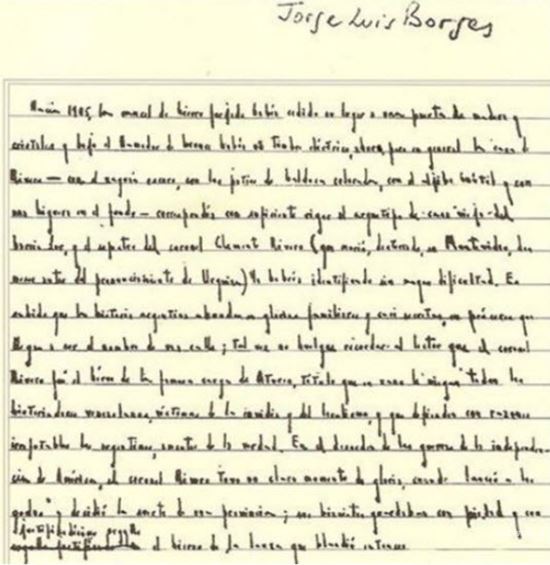 Jorge Luis Borges
Hacia 1905, la cancel de hierro forjado había cedido su lugar a una puerta de madera y
cristales y bajo el llamador de bronce había un timbre eléctrico, ahora, pero en general la casa de
Rivero — con el zaguán oscuro, con los patios de baldosa colorada, con el aljibe inútil y con
una higuera en el fondo — correspondía con suficiente rigor al arquetipo de casa vieja del
barrio Sur, y el espectro del coronel Clemente Rivero (que murió, desterrado, en Montevideo,
nueve antes del pronunciamiento de Urquiza) la habría identificado sin mayor dificultad. Es
sabido que la historia argentina abunda en glorias familiares y casi secretas, en próceres que
llegan a ser el nombre de una calle; tal vez no huelgue recordar al lector que el coronel
Rivero fue el héroe de la primera carga de título que en vano le niegan todos los
historiadores venezolanos, víctimas de la envidia y del localismo, y que defienden con razones
irrefutables los argentinos, amantes de la verdad. En el decurso de las guerras de la independen-
cia de América, el coronel Rivero tuvo un claro momento de gloria, cuando lanceó a los
godos y decidió la suerte de una provincia; sus biznietos guardaban con piedad y con
el hierro de la lanza que blandió entonces